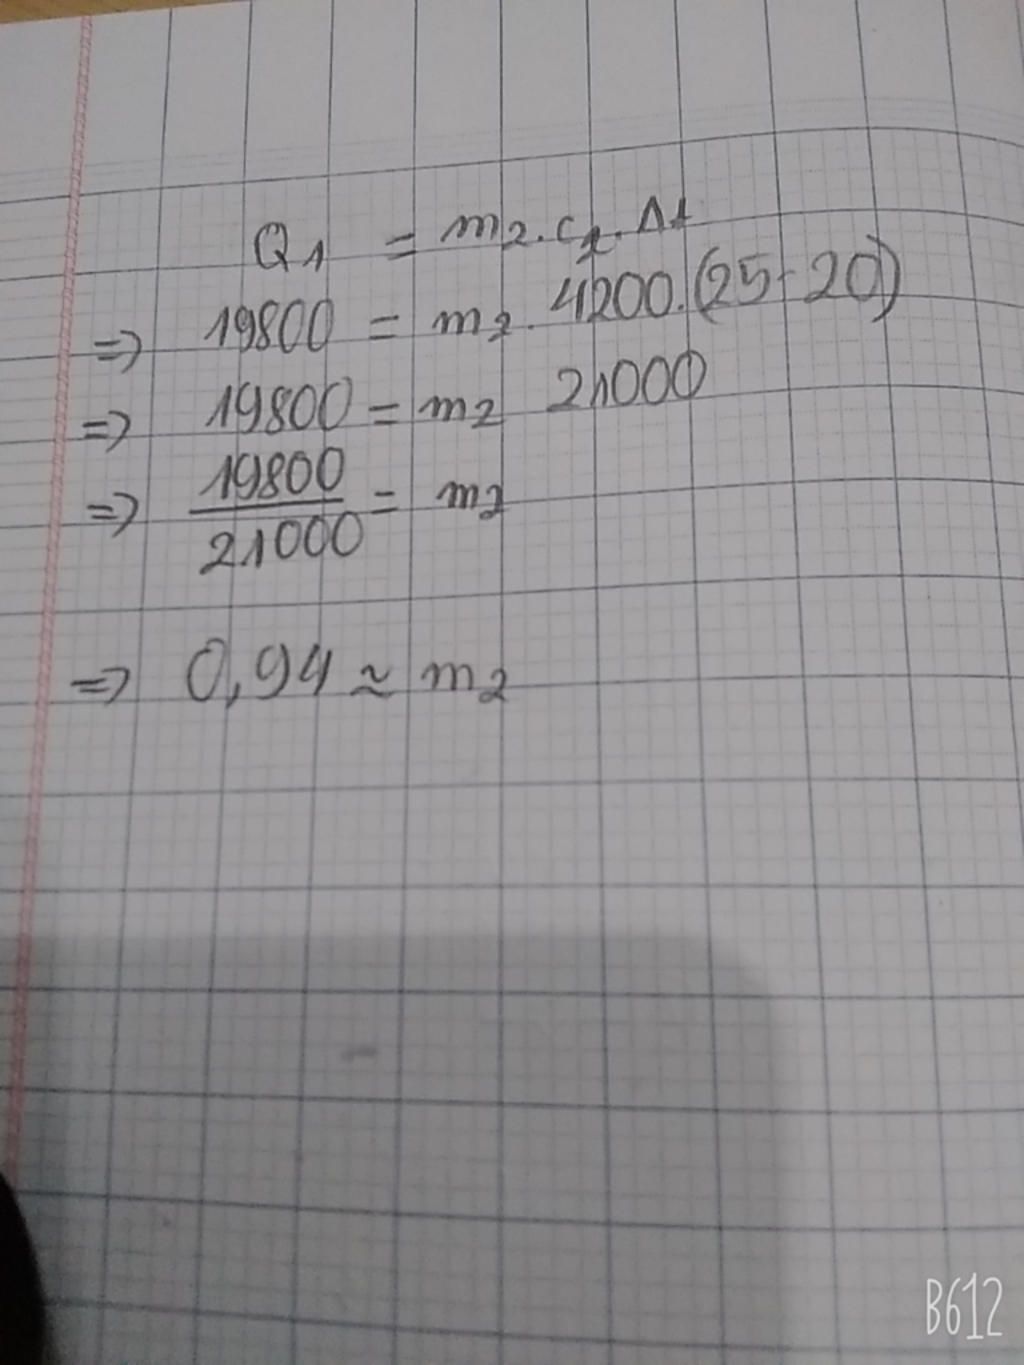 Q1 = m2. c2. Δt
=> 19800 = m2. 4200.(25-20)
=> 19800 = m2 21000
=> 19800/21000 = m2
=> 0,94 ≈ m2
B612